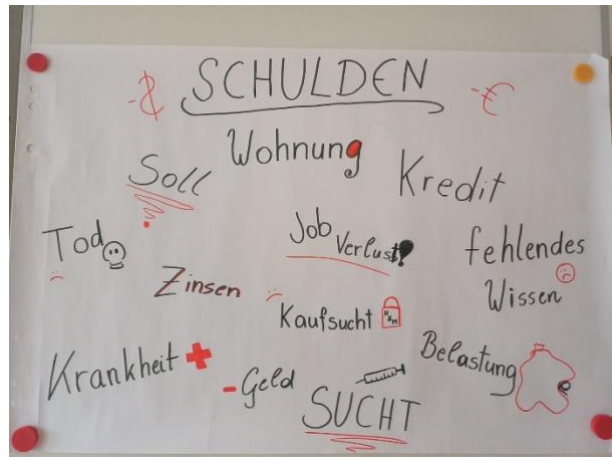 SCHULDEN
-$ -€
Wohnung
Soll
Kredit
Tod
Job Verlust!
fehlendes
Wissen
Zinsen
Kaufsucht H&M
Krankheit
Belastung
-Geld
SUCHT